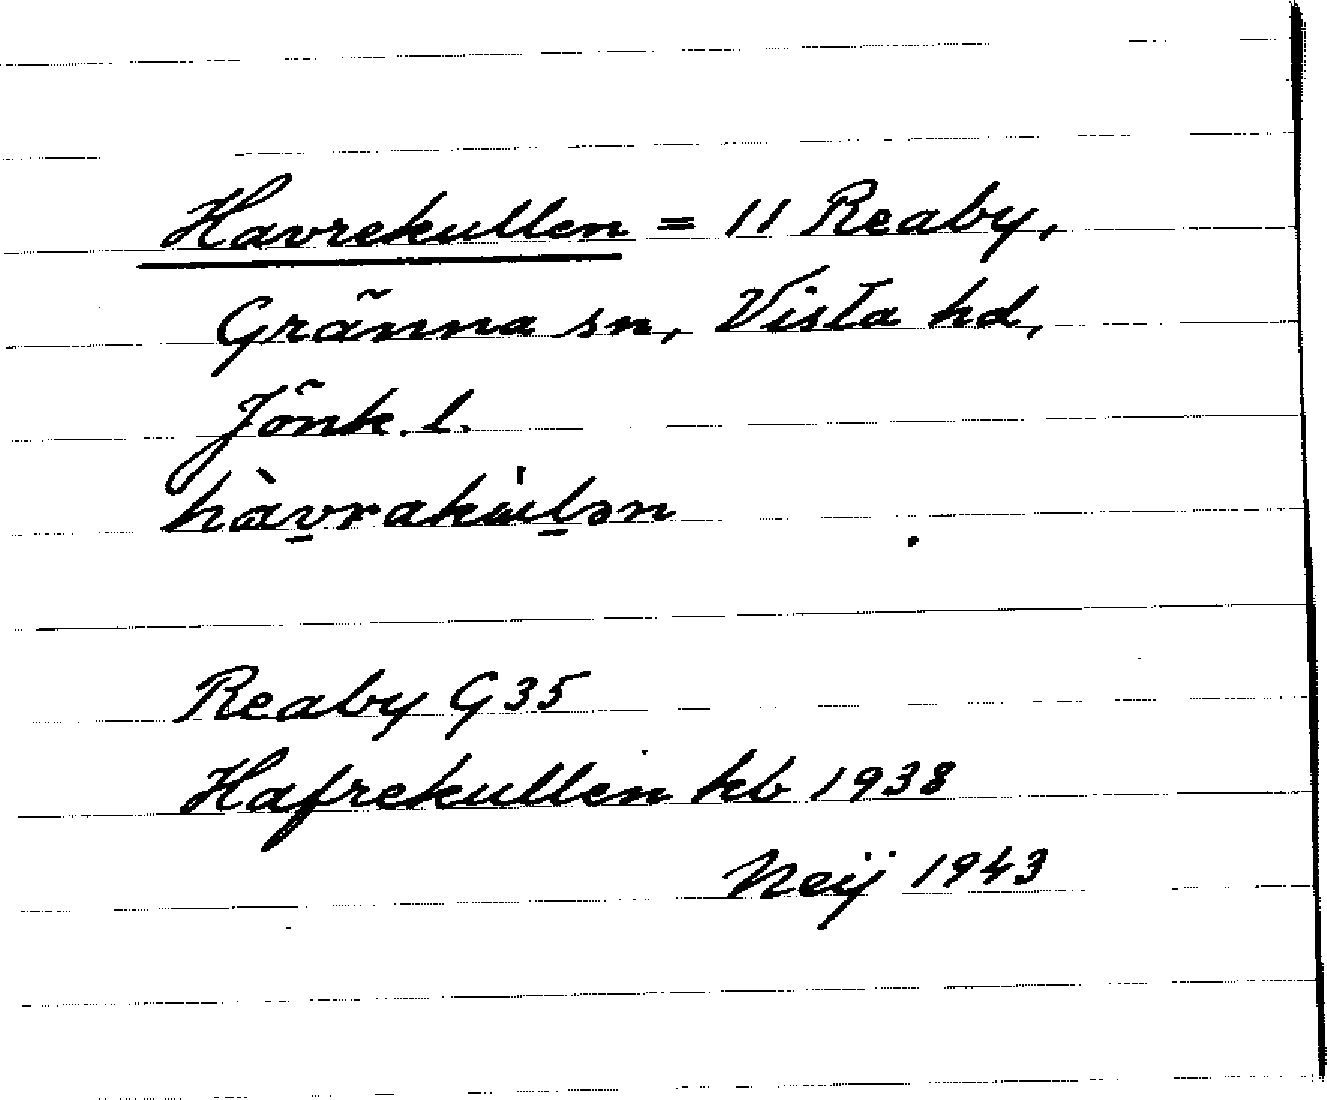 Havrekullen = 11 Reaby,
Gränna sn, Vista hd,
Jönk. l.
hàvrakùlən
Reaby G35
Hafrekullen kb 1938
Neij 1943